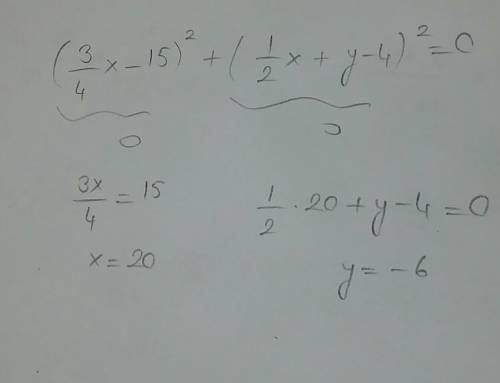 (3/4 x - 15)² + (1/2 x + y - 4)² = 0
0 0
3x/4 = 15
x = 20
1/2 · 20 + y - 4 = 0
y = -6